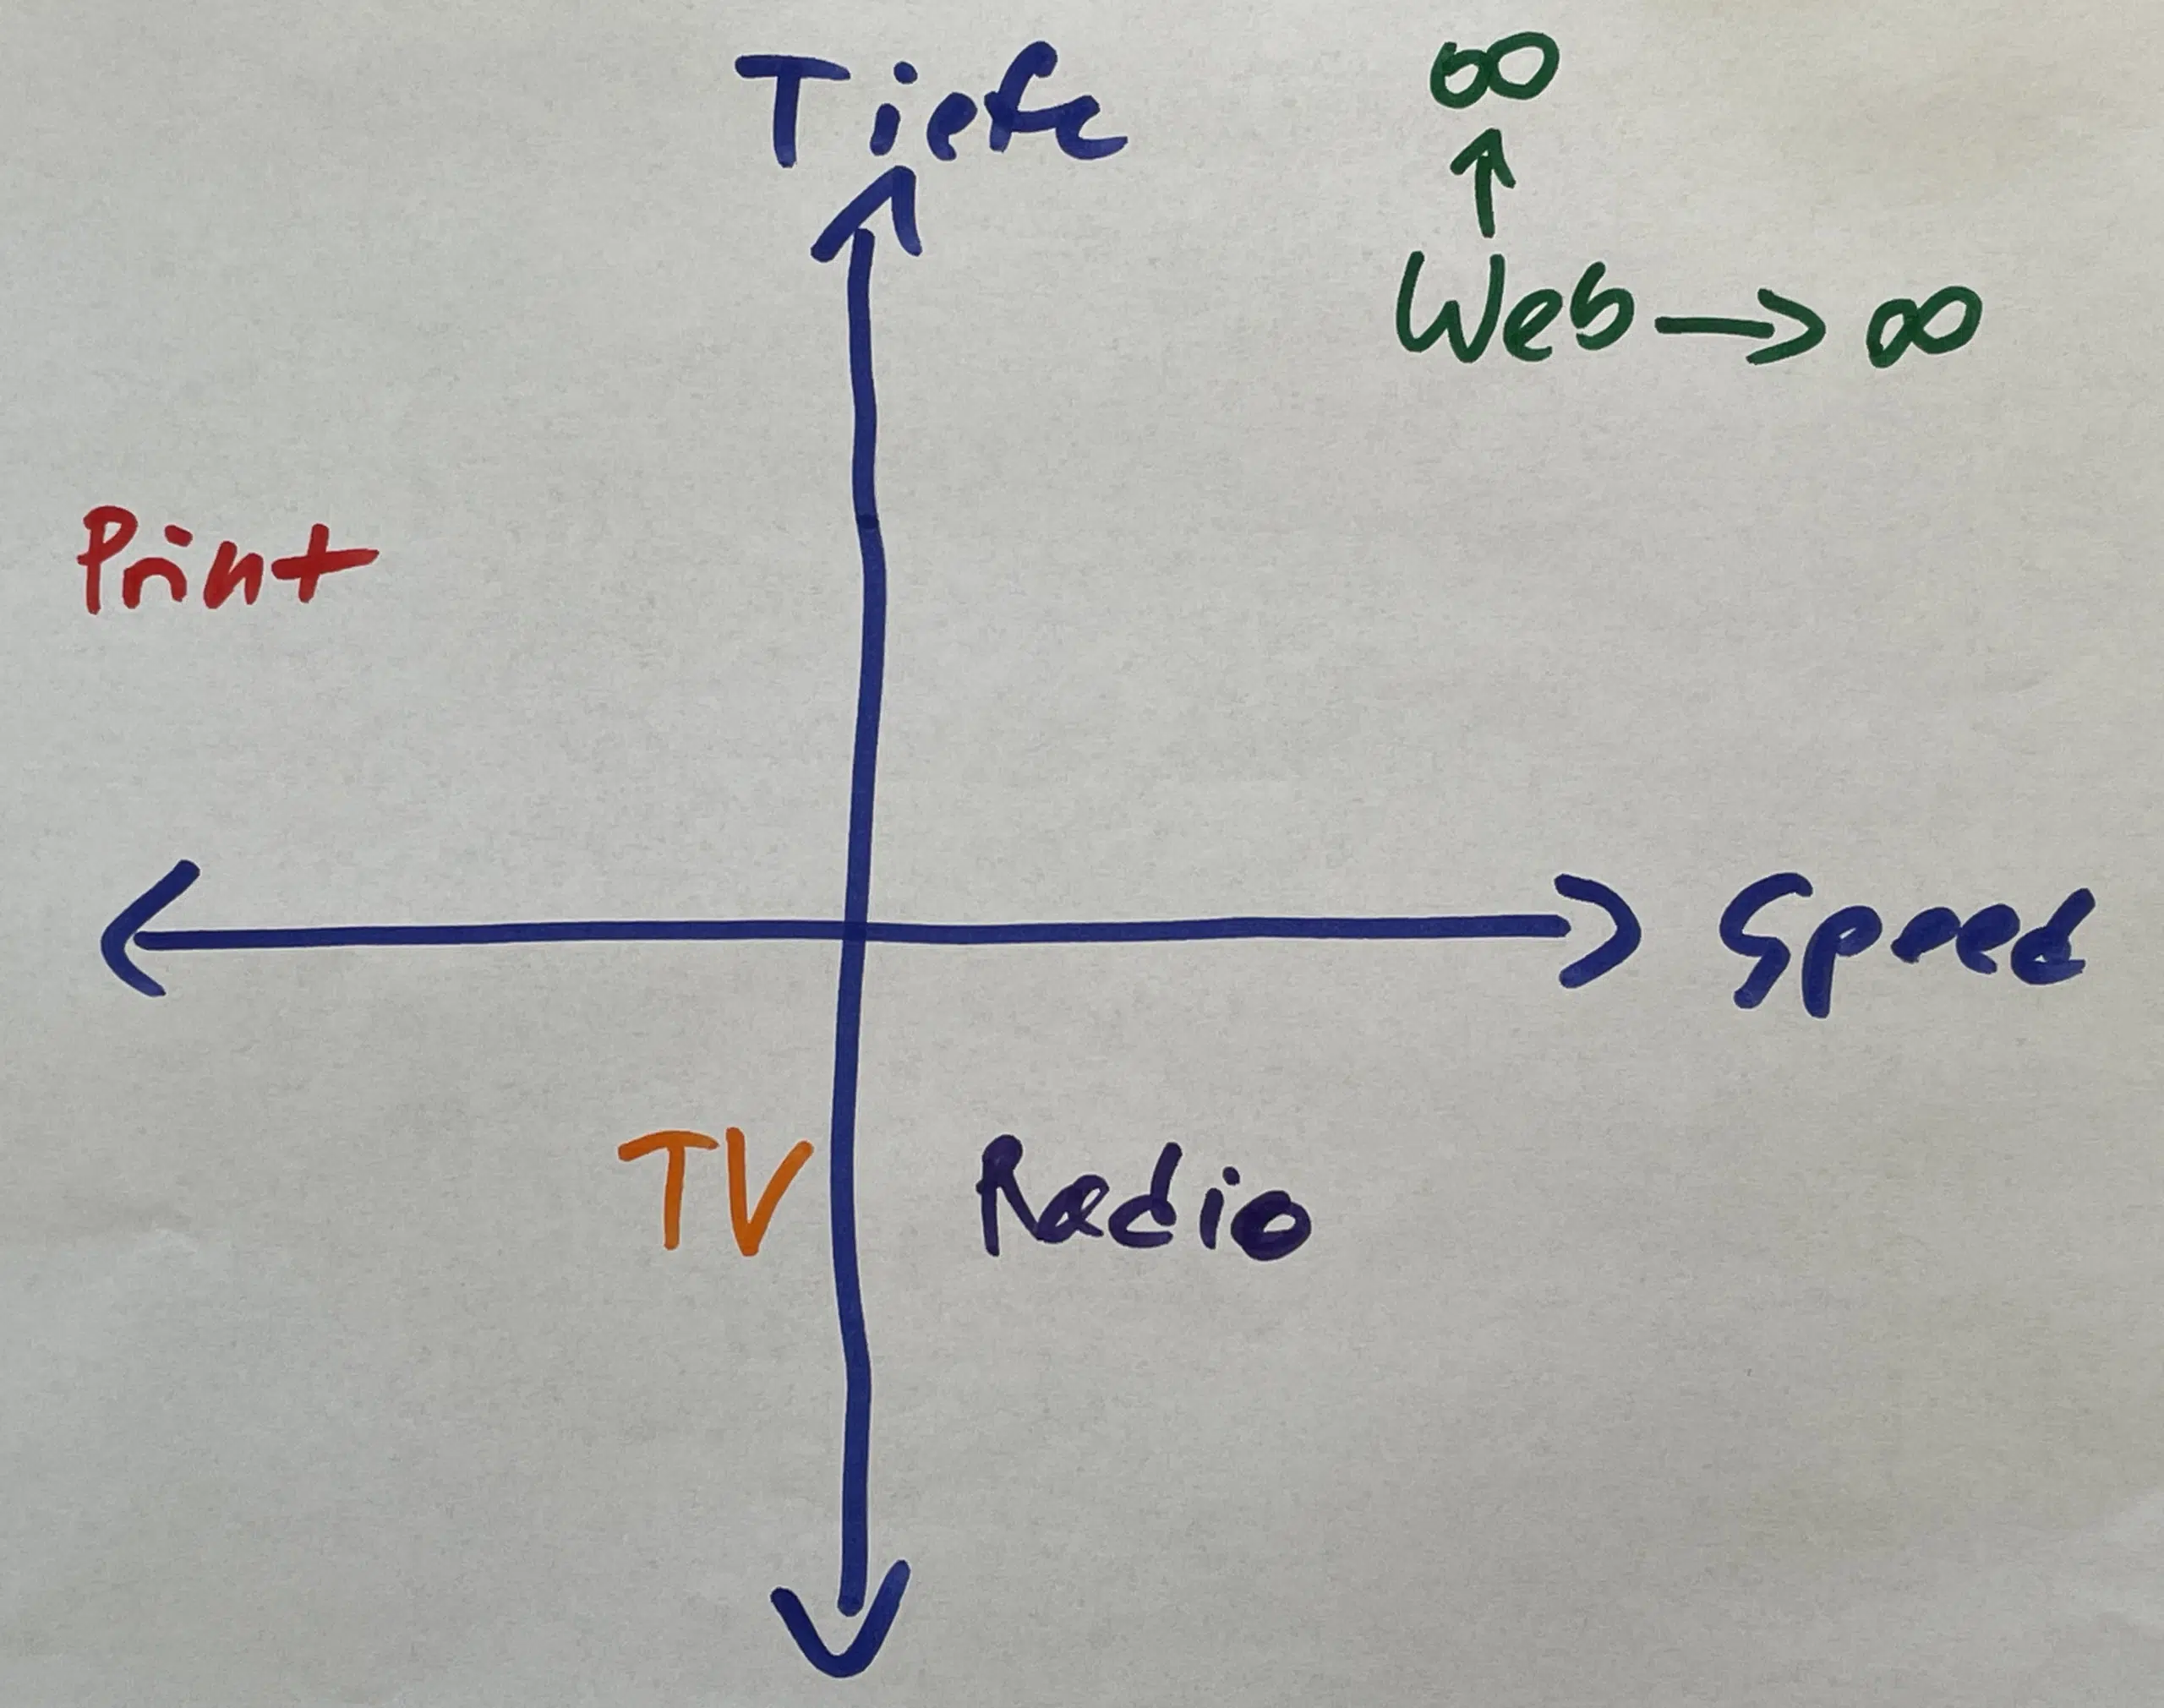 Tiefe
∞
↑
Web → ∞
Print
Speed
TV
Radio